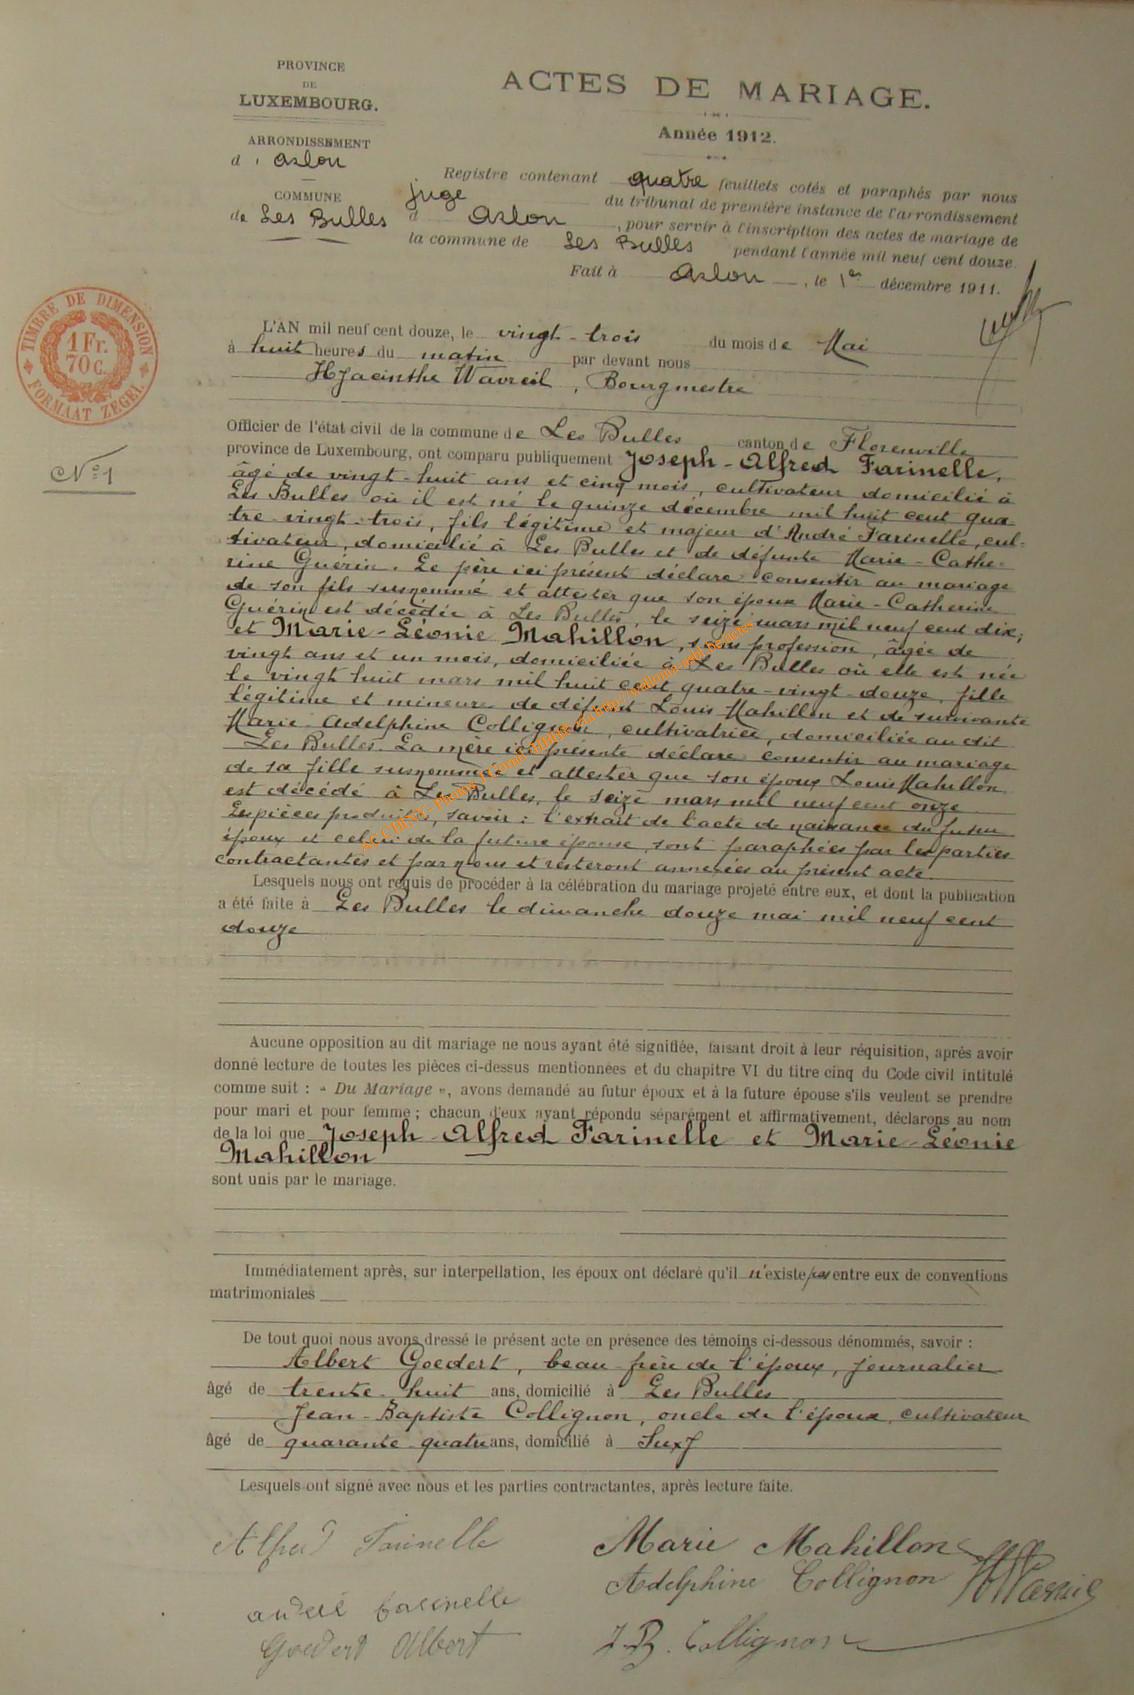 PROVINCE
DE
LUXEMBOURG.
ARRONDISSEMENT
d' Arlon
COMMUNE
de Les Bulles
ACTES DE MARIAGE.
Année 1912.
Registre contenant quatre feuillets cotés et paraphés par nous
juge du tribunal de première instance de l'arrondissement
d Arlon, pour servir à l'inscription des actes de mariage de
la commune de Les Bulles pendant l'année mil neuf cent douze.
Fait à Arlon, le 1er décembre 1911.
TIMBRE DE DIMENSION
1 Fr.
70 c.
FORMAAT ZEGEL
N° 1
L'AN mil neuf cent douze, le vingt-trois du mois de Mai
à huit heures du matin par devant nous
Hyacinthe Wavreil, Bourgmestre
Officier de l'état civil de la commune de Les Bulles canton de Florenville
province de Luxembourg, ont comparu publiquement Joseph-Alfred Farinelle,
âgé de vingt-huit ans et cinq mois, cultivateur domicilié à
Les Bulles où il est né le quinze décembre mil huit cent qua
tre-vingt-trois, fils légitime et majeur d'André Farinelle, cul-
tivateur, domicilié à Les Bulles et de défunte Marie-Cathe-
rine Guérin. Le père ici présent déclare consentir au mariage
de son fils susnommé et attester que son épouse Marie-Catherine
Guérin est décédée à Les Bulles, le seize mars mil neuf cent dix;
et Marie-Léonie Mahillon, sans profession, âgée de
vingt ans et un mois, domiciliée à Les Bulles où elle est née
le vingt huit mars mil huit cent quatre-vingt-douze, fille
légitime et mineure de défunt Louis Mahillon et de survivante
Marie Adelphine Collignon, cultivatrice, domiciliée au dit
Les Bulles. La mère ici présente déclare consentir au mariage
de sa fille susnommée et attester que son époux Louis Mahillon
est décédé à Les Bulles, le seize mars mil neuf cent onze
Les pièces produites, savoir : l'extrait de l'acte de naissance du futur
époux et celui de la future épouse, sont paraphées par les parties
contractantes et par nous et resteront annexées au présent acte.
Lesquels nous ont requis de procéder à la célébration du mariage projeté entre eux, et dont la publication
a été faite à Les Bulles le dimanche douze mai mil neuf cent
douze
Aucune opposition au dit mariage ne nous ayant été signifiée, faisant droit à leur réquisition, après avoir
donné lecture de toutes les pièces ci-dessus mentionnées et du chapitre VI du titre cinq du Code civil intitulé
comme suit : « Du Mariage », avons demandé au futur époux et à la future épouse s'ils veulent se prendre
pour mari et pour femme ; chacun d'eux ayant répondu séparément et affirmativement, déclarons au nom
de la loi que Joseph-Alfred Farinelle et Marie-Léonie
Mahillon
sont unis par le mariage.
Immédiatement après, sur interpellation, les époux ont déclaré qu'il n'existe pas entre eux de conventions
matrimoniales
De tout quoi nous avons dressé le présent acte en présence des témoins ci-dessous dénommés, savoir :
Albert Goedert, beau-frère de l'époux, journalier
âgé de trente-huit ans, domicilié à Les Bulles
Jean-Baptiste Collignon, oncle de l'épouse, cultivateur
âgé de quarante-quatre ans, domicilié à Suxy
Lesquels ont signé avec nous et les parties contractantes, après lecture faite.
Alfred Farinelle
Marie Mahillon
Adelphine Collignon
André Farinelle
Goedert Albert
J. B. Collignon